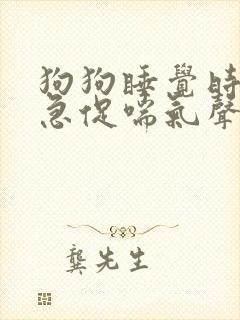 狗狗睡覺時
急促喘氣聲
龔先生